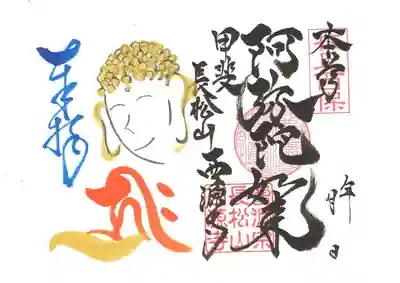 本尊
阿弥陀如来
甲斐
長松山
西源寺
奉拝
年 月 日
長松山